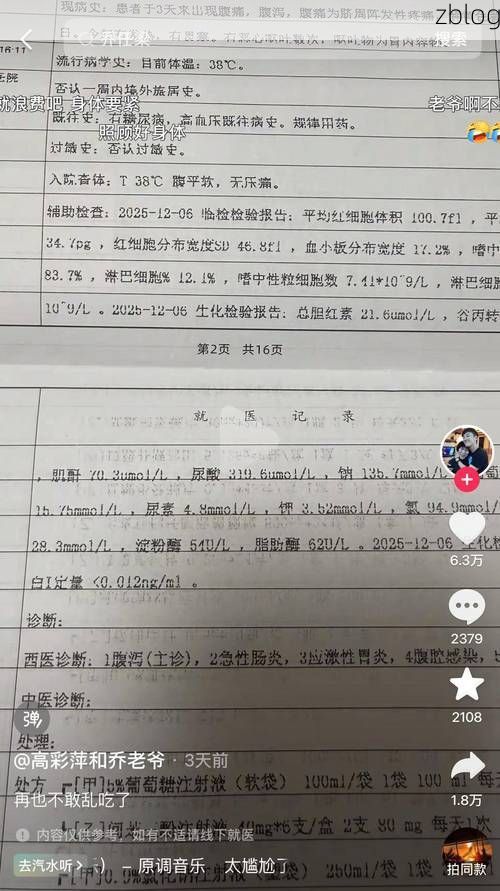 zblog
现病史：患者于3天来出现腹痛，腹泻，腹痛为脐周阵发性疼痛
乔任梁
搜索
16:11
流行病学史：目前体温：38℃。
医院
否认一周内境外旅居史。
就浪费吧 身体要紧
老爷啊不
既往史：有糖尿病，高血压既往病史。规律用药。
照顾好身体
过敏史：否认过敏史。
入院查体：T 38℃ 腹平软，无压痛。
辅助检查：2025-12-06 临检检验报告：平均红细胞体积 100.7fl ，平
34.7pg ，红细胞分布宽度SD 46.8fl ，血小板分布宽度 17.2% ，嗜中
83.7% ，淋巴细胞% 12.1% ，嗜中性粒细胞数 7.41*10^9/L ，淋巴细
10^9/L 。2025-12-06 生化检验报告：总胆红素 21.6umol/L ，谷丙转
第2页 共16页
就 医 记 录
，肌酐 70.3umol/L ，尿酸 319.6umol/L ，钠 135.7mmol/L
15.75mmol/L ，尿素 4.8mmol/L ，钾 3.52mmol/L ，氯 94.9mmol/
6.3万
28.3mmol/L ，淀粉酶 54U/L ，脂肪酶 62U/L 。2025-12-06 生化检
白I定量 <0.012ng/ml 。
诊断：
2379
西医诊断：1腹泻(主诊)，2急性肠炎，3应激性胃炎，4腹腔感染，
中医诊断：
2108
弹
处理：
@高彩萍和乔老爷 · 3天前
处方 ┏[甲]5%葡萄糖注射液（软袋） 100ml/袋 1袋 100 ml 每天
再也不敢乱吃了
1.8万
40mg*6支/盒 2支 80 mg 每天1次
内容仅供参考，如有不适请线下就医
去汽水听 > :） - 原调音乐 太尴尬了
拍同款
┏[甲]0.9%氯化钠注射液（ 250ml/袋 1袋